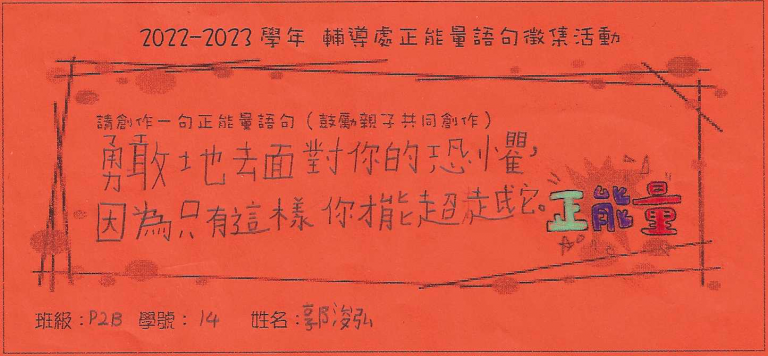 2022-2023學年 輔導處正能量語句徵集活動
請創作一句正能量語句（鼓勵親子共同創作）
勇敢地去面對你的恐懼，
因為只有這樣你才能超越它。
正能量
班級：P2B 學號：14 姓名：郭浚弘